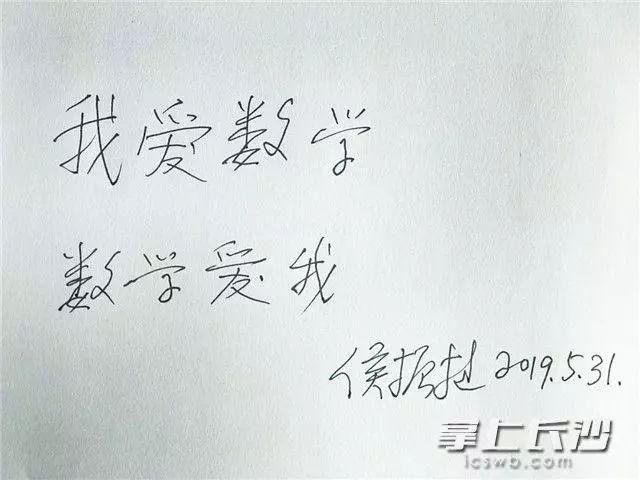 我爱数学
数学爱我
侯振挺 2019.5.31.
掌上长沙
icswb.com